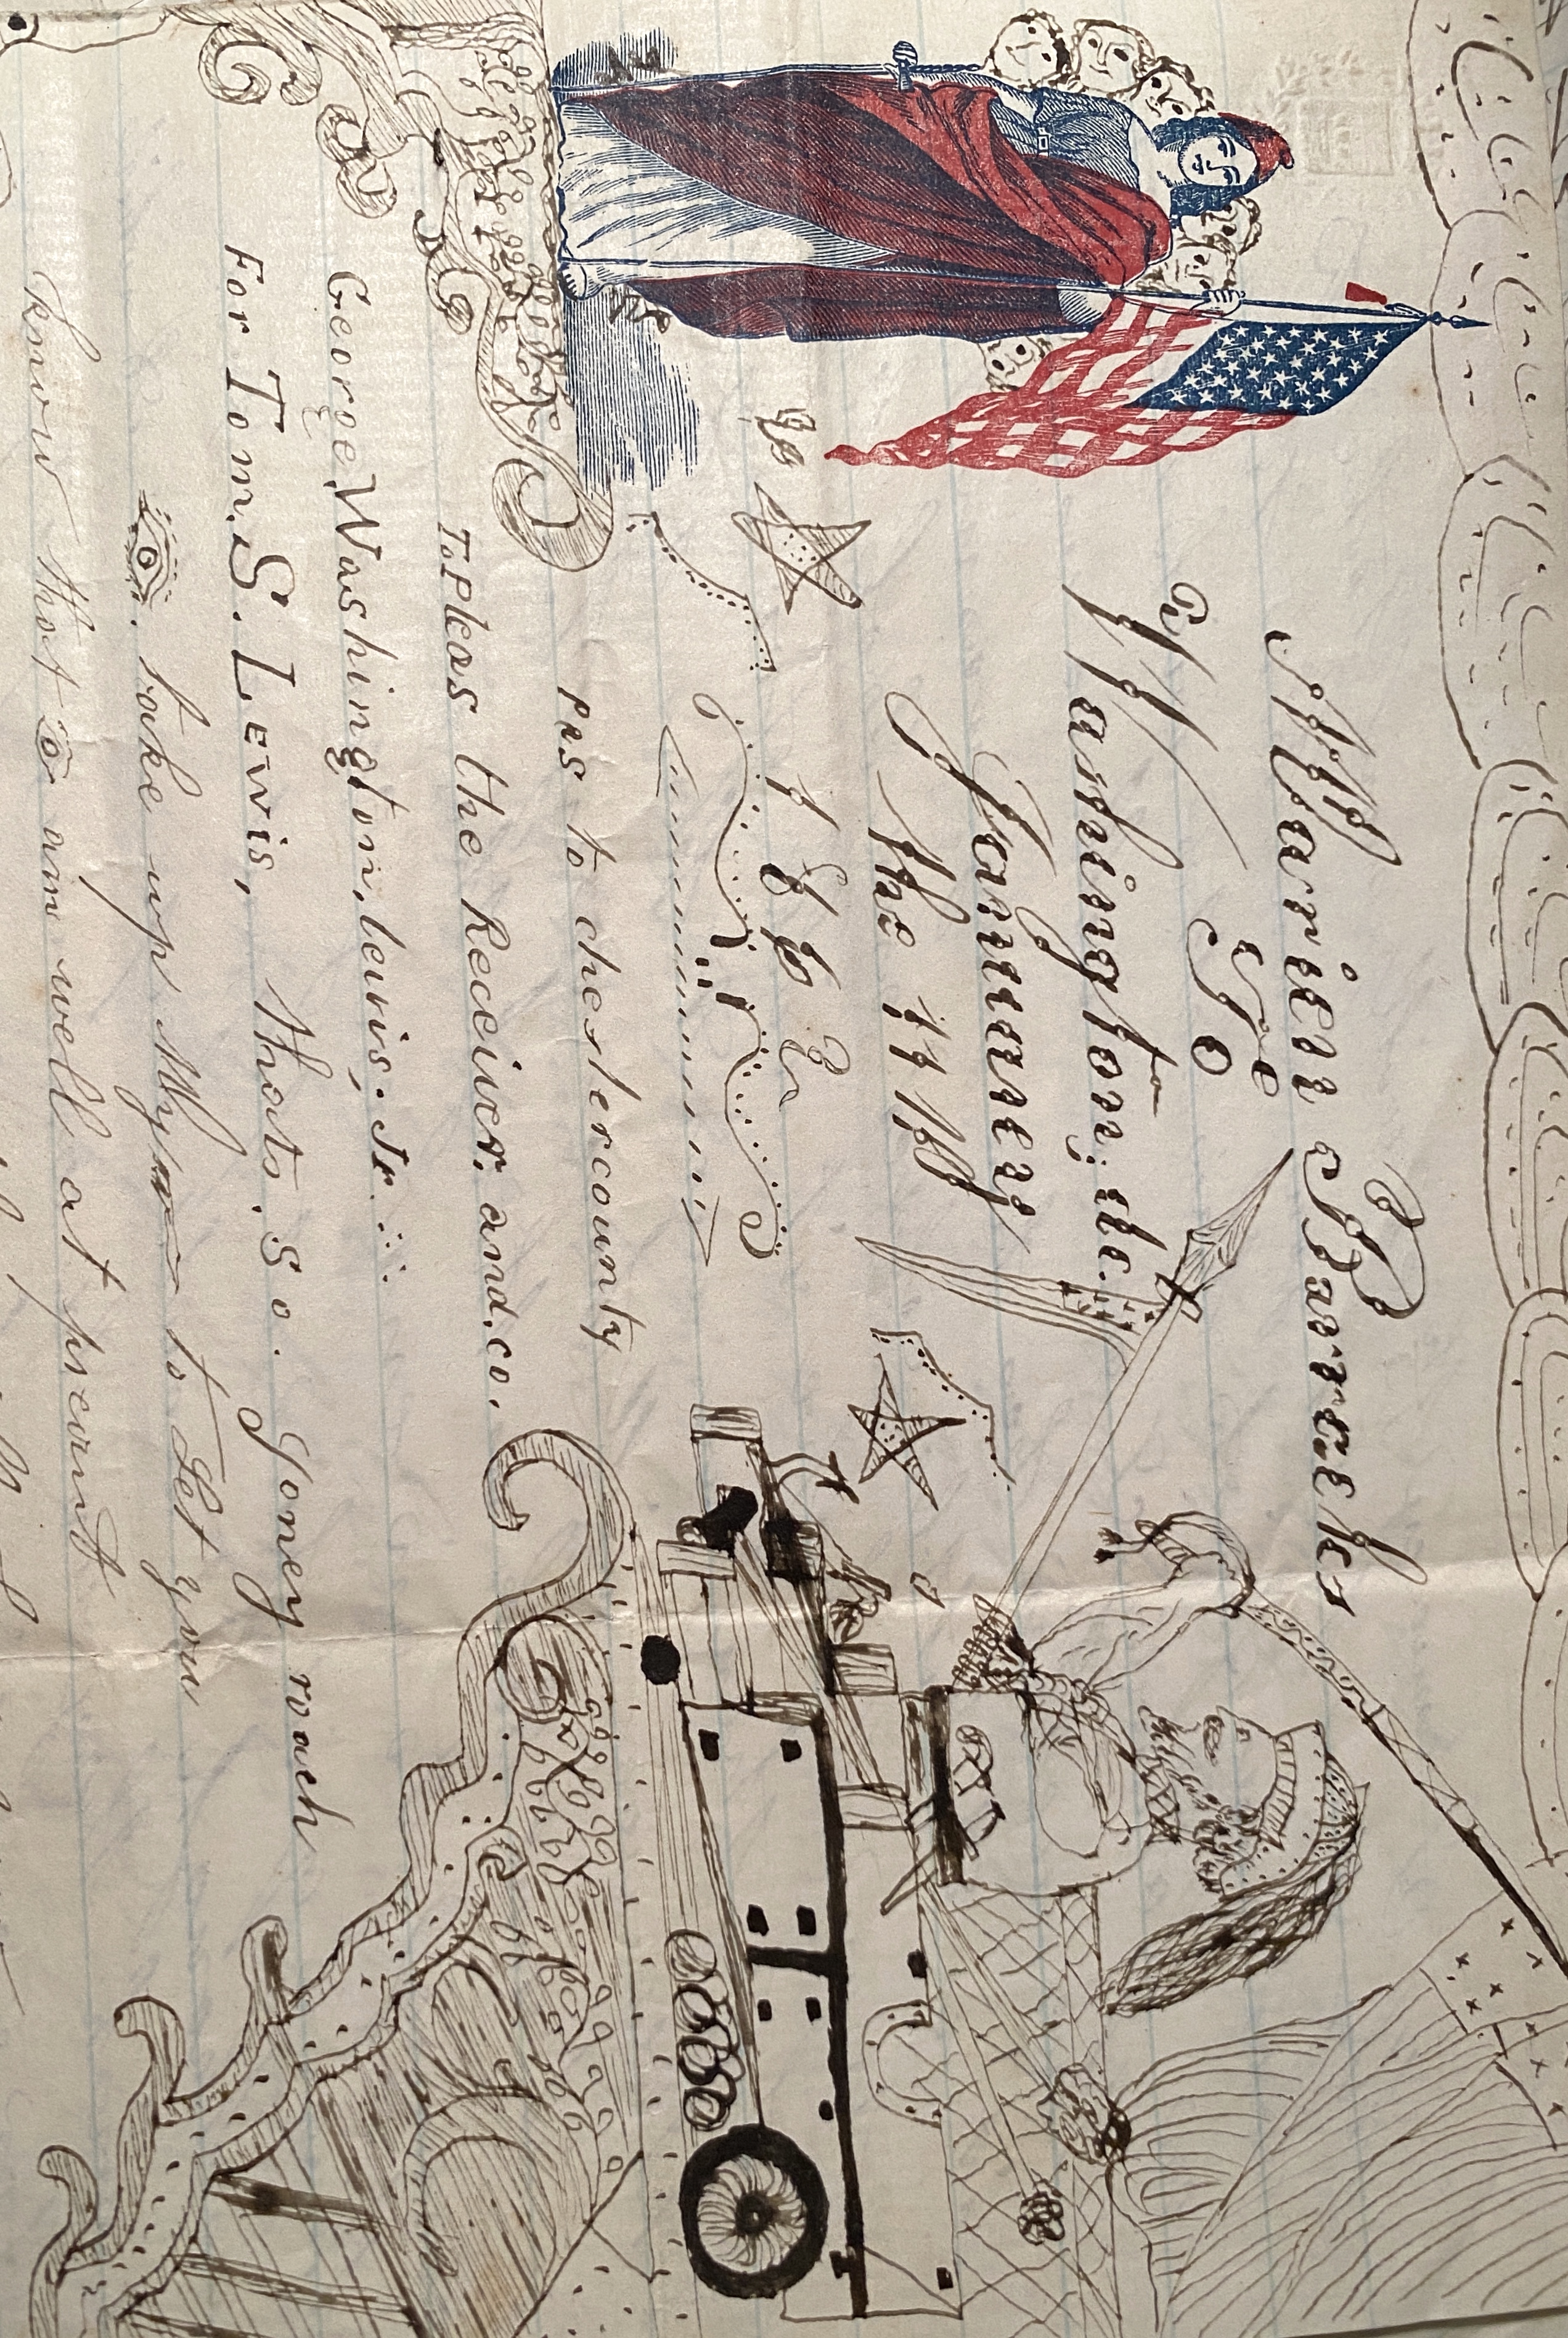 Warrien Barracks
Co
Washington, the.
January
the 11th
1862
Pas to chestercounty
To Pleas the Reciever. and.co.
George.Washington.lewis. Jr
For Tom. S. Lewis, thats. so. Joney roach
I. take up My to Let you
know that I am well at precant